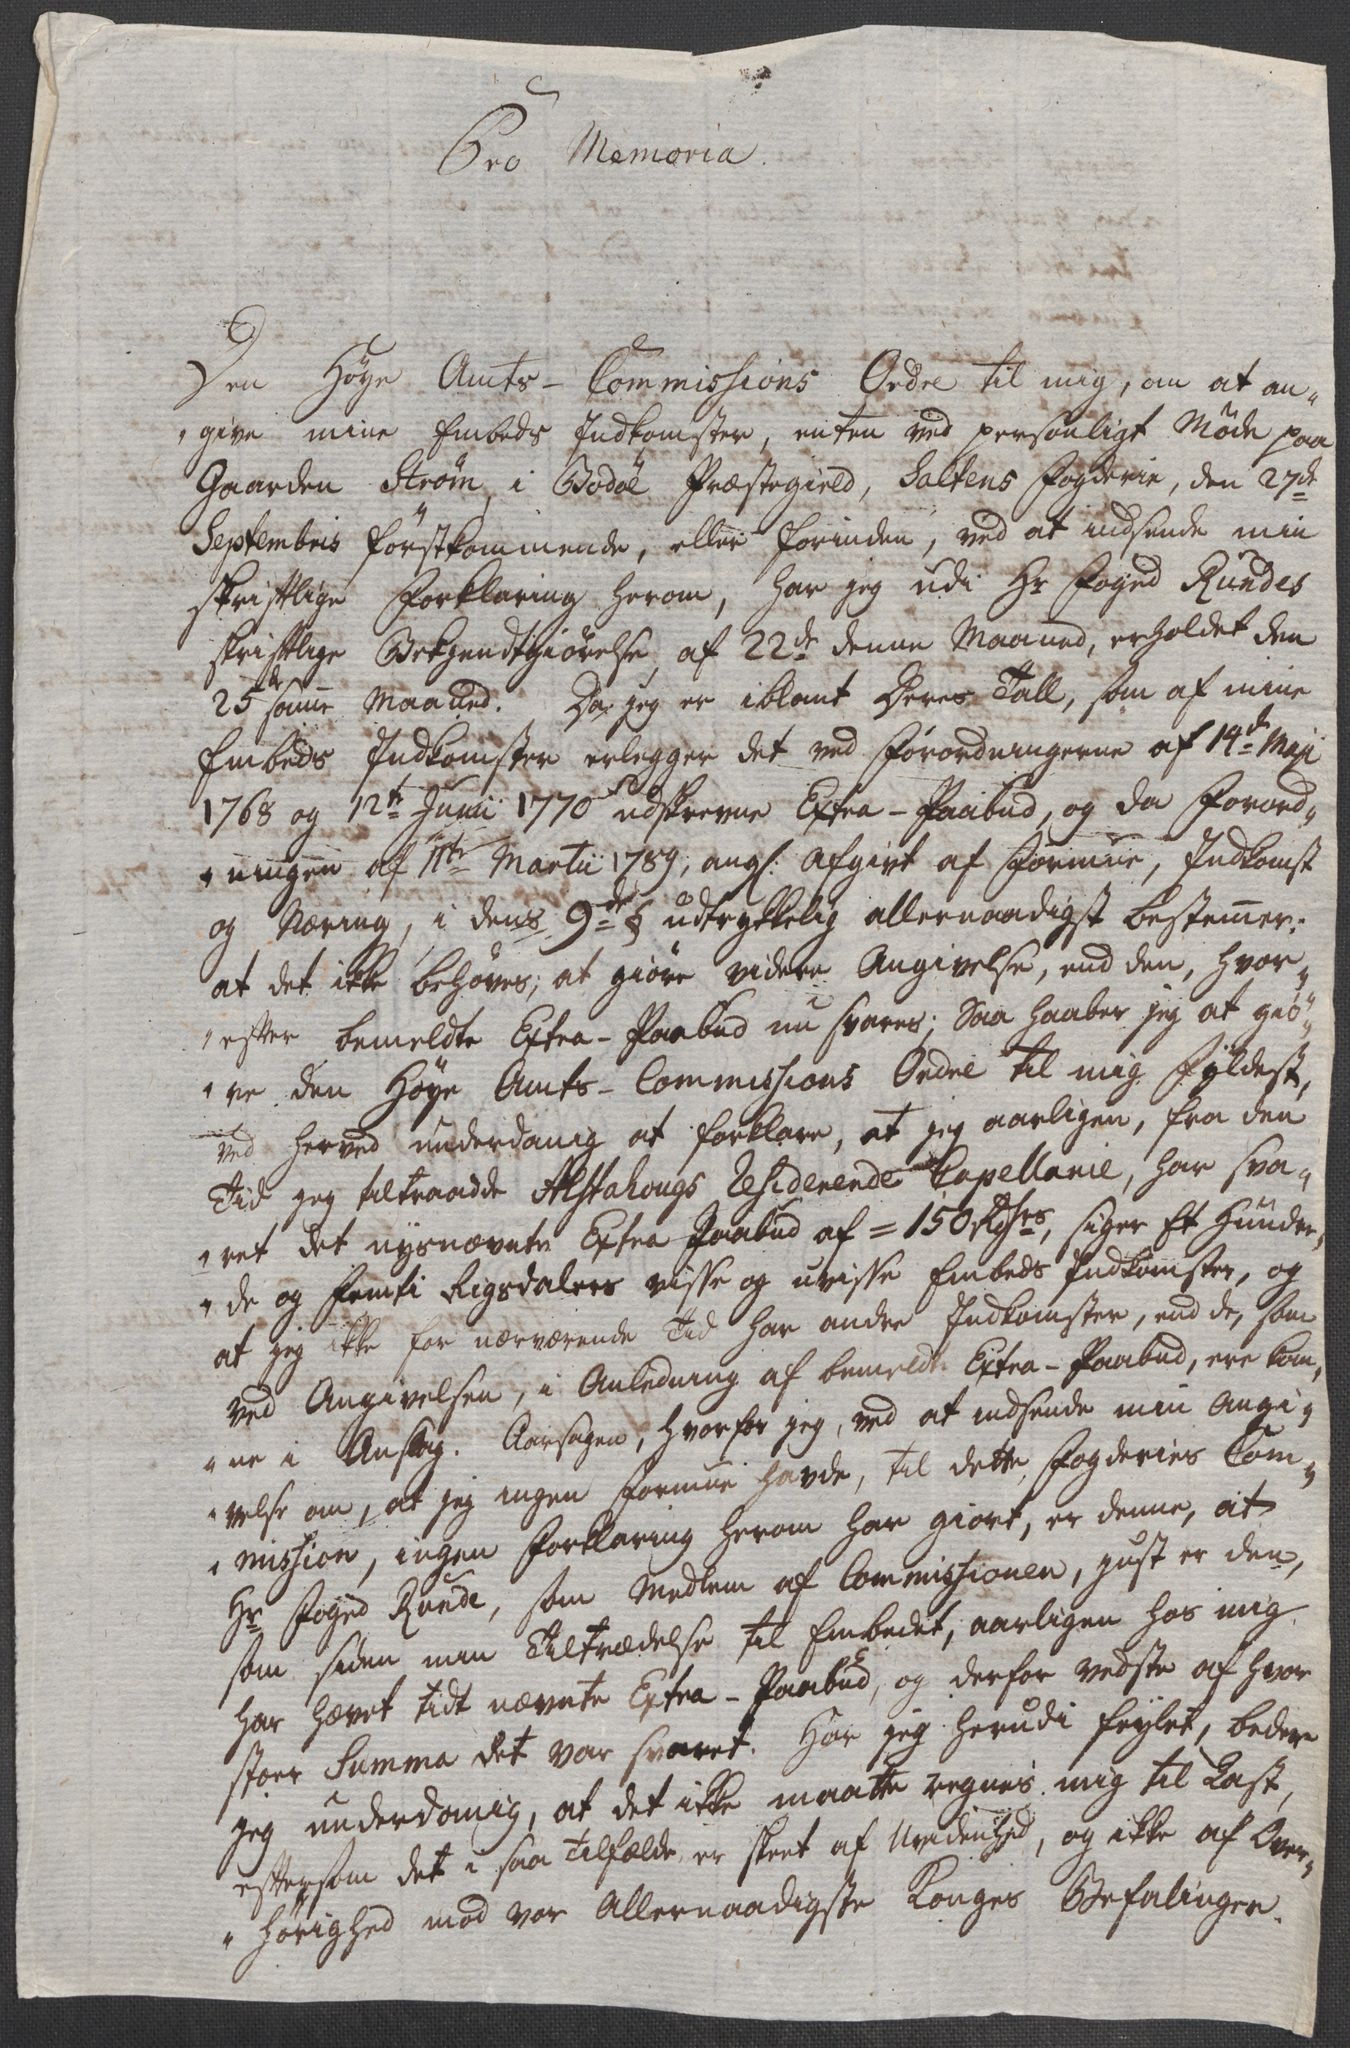 Pro Memoria.
Den Höye Amts-Commissions Ordre til mig, om at an„
„give mine Embeds Indkomster, enten ved personligt Möde paa
Gaarden Strøm i Bodöe Præstegield, Saltens Fogderie, den 27de
Septembris förstkommende, eller forinden, ved at indsende min
skriftlige Forklaring herom, har jeg udi Hr Foged Rundes
skriftlige Bekjendtgiörelse af 22de denne Maaned, erholdet den
25de samme Maaned. Da jeg er iblant Deres Tall, som af mine
Embeds Indkomster erlegger det ved Forordningerne af 14de Maji
1768 og 12te Junii 1770 udskrevne Extra-Paabud, og da Forord„
„ningen af 11te Martii 1789, angl: Afgivt af Formue, Indkomst
og Næring, i dens 9de § udtrykkelig allernaadigst bestemmer:
at det ikke behöves, at giöre videre Angivelse, end den, hvor„
„efter bemeldte Extra-Paabud nu svares; Saa haaber jeg at giö„
„re den Höye Amts-Commissions Ordre til mig Fyldest,
ved herved underdanig at forklare, at jeg aarligen, fra den
Tid jeg tiltraadde Alstahougs Residerende Capellanie, har sva„
„ret det nysnævnte Extra Paabud af = 150 Rdlrs, siger Et Hundre„
„de og Femti Rigsdalers visse og uvisse Embeds Indkomster, og
at jeg ikke for nærværende Tid har andre Indkomster, end de, som
ved Angivelsen, i Anledning af bemeldte Extra-Paabud, ere kom„
„ne i Anslag. Aarsagen, hvorfor jeg, ved at indsende min Angi„
„velse om, at jeg ingen Formue havde, til dette Fogderies Com„
„mission, ingen Forklaring herom har giort, er denne, at
Hr Foged Runde, som Medlem af Commissionen, just er den,
som siden min Tiltrædelse til Embedet, aarligen hos mig
har hævet tidt nævnte Extra-Paabud, og derfor vedste af hvor
stoer Summa det var svaret. Har jeg herudi feylet, beder
jeg underdanig, at det ikke maatte regnes mig til Last,
eftersom det i saa Tilfælde er skeet af Uvidenhed, og ikke af Over„
„hörighed mod vor Allernaadigste Konges Befalinger.